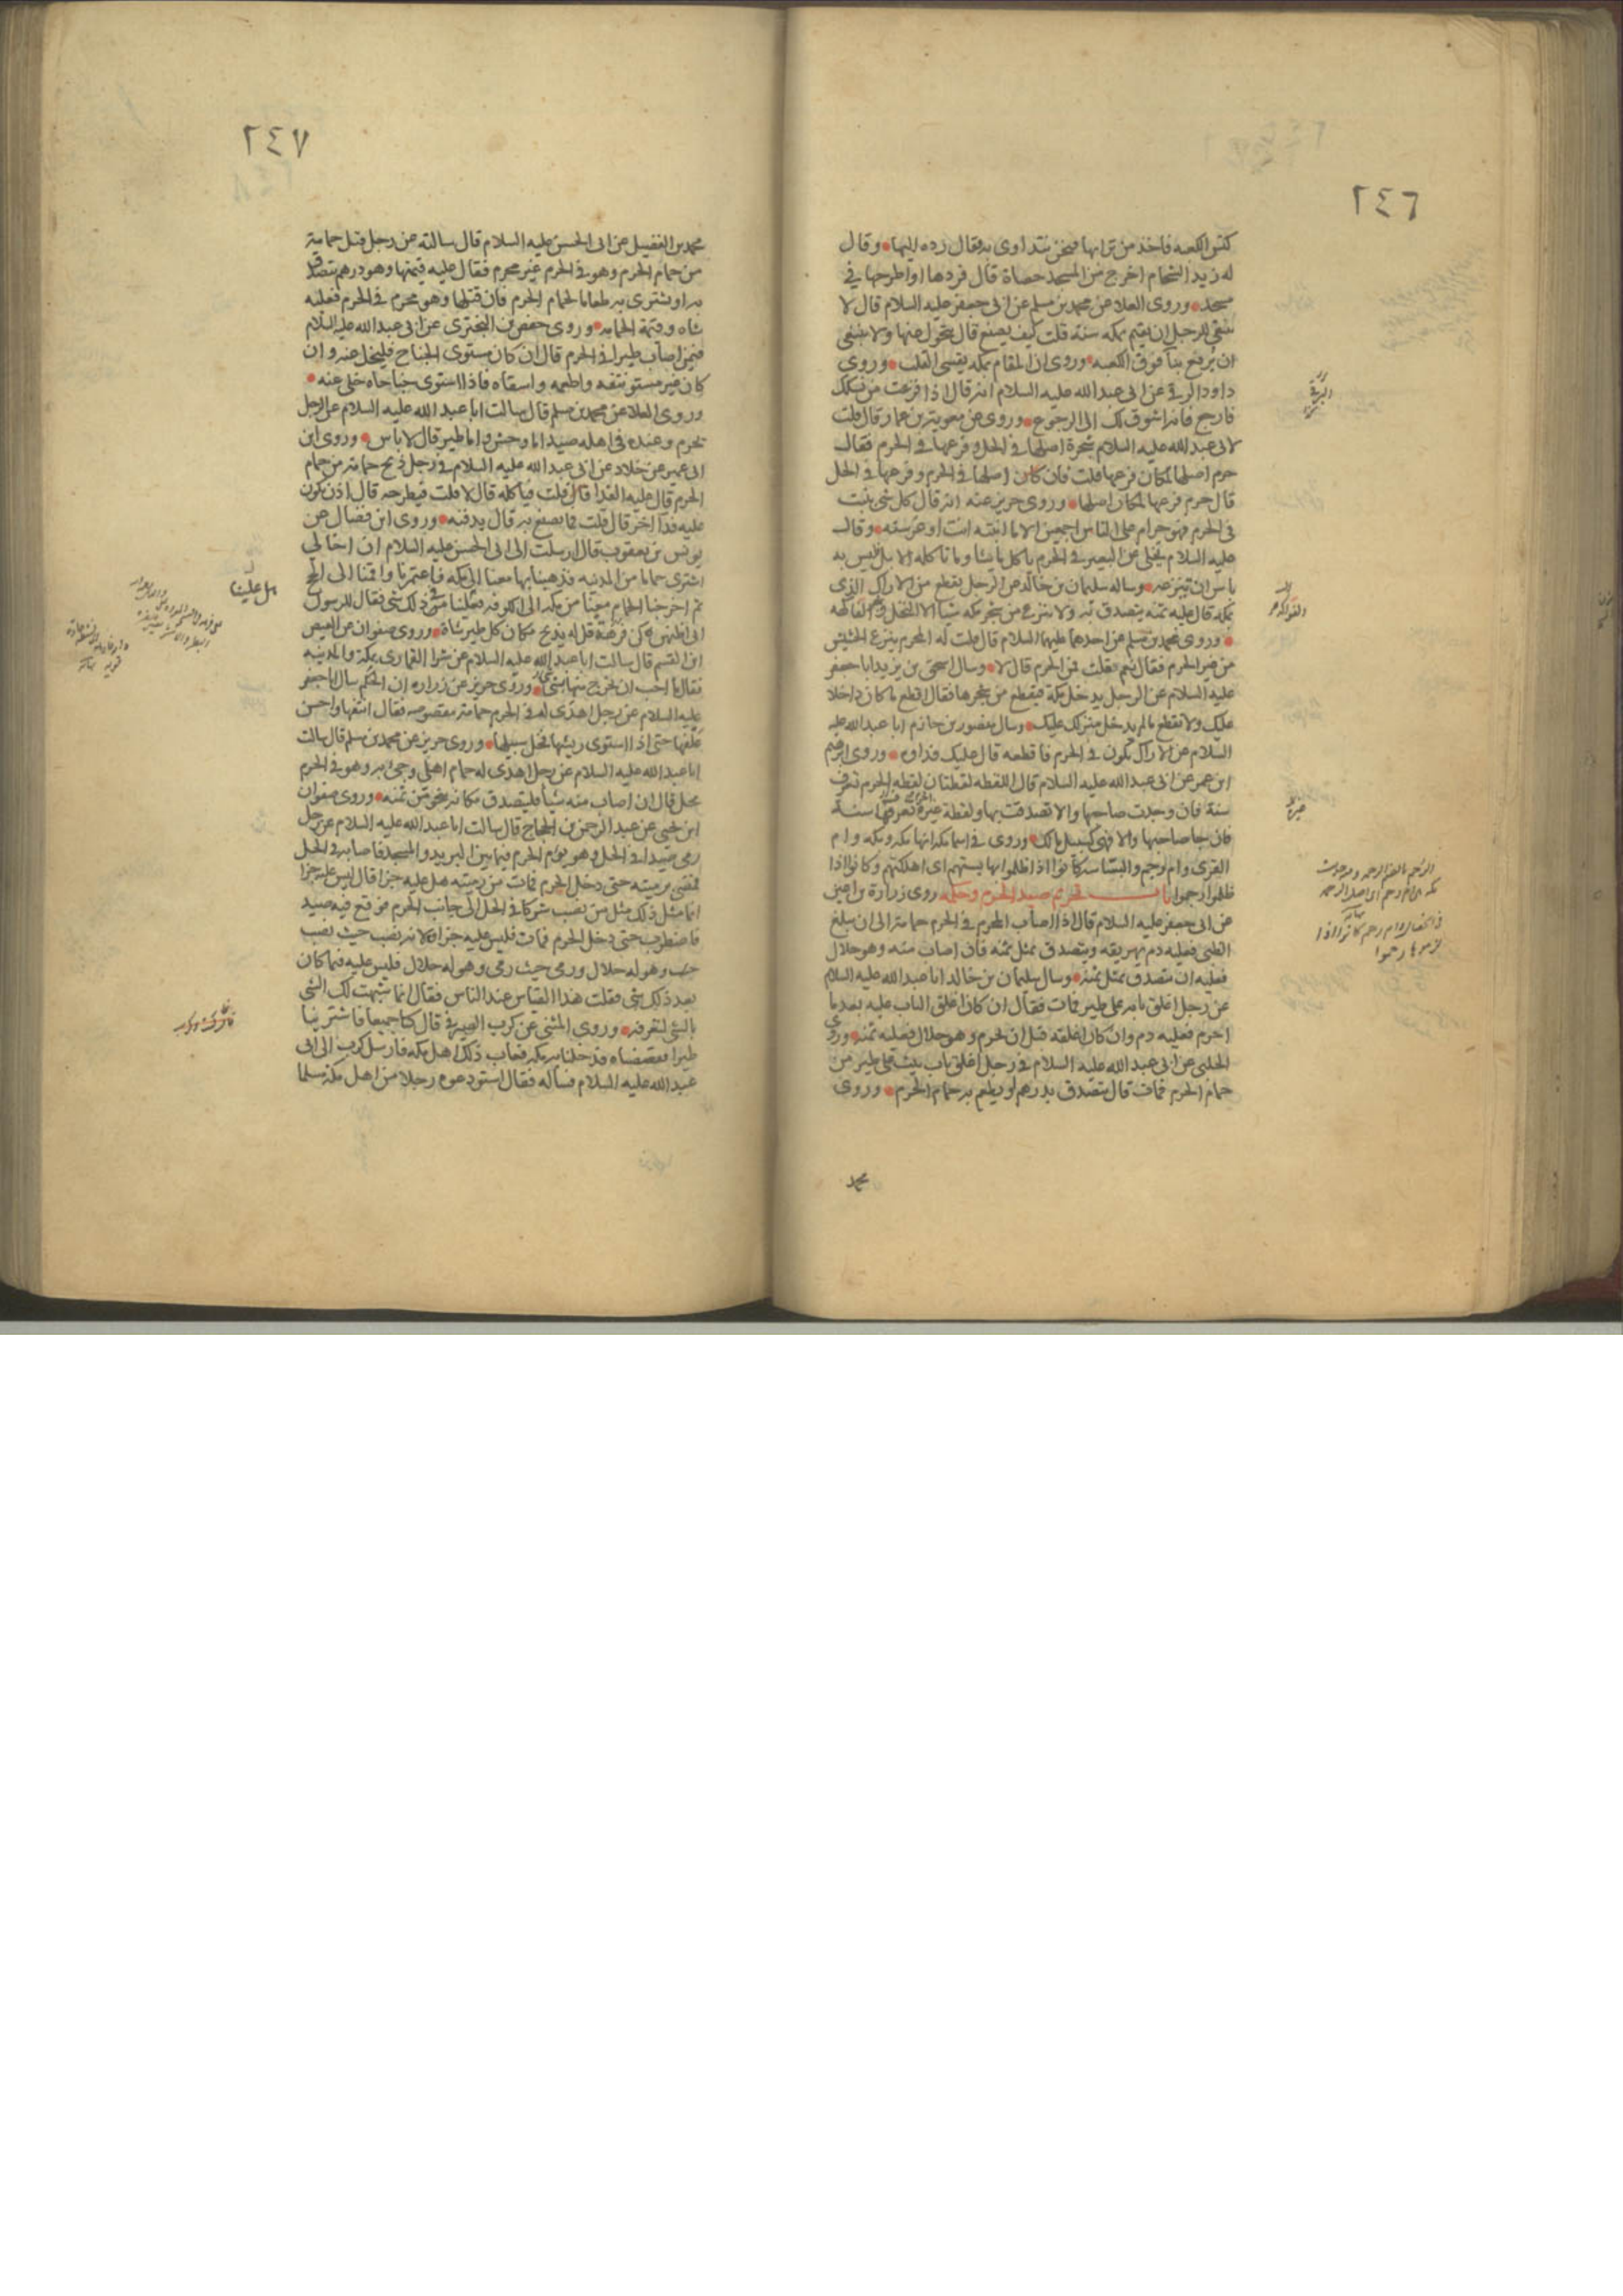 ٢٤٦
كنس الكعبه فاخذ من ترابها فنحن نتداوى به فقال رده اليها وقال
له زيد الشحام اخرج من المسجد حصاة قال فردها او اطرحها في
مسجد وروى العلا عن محمد بن مسلم عن ابي جعفر عليه السلام قال لا
ينبغي للرجل ان يقيم بمكه سنة قلت كيف يصنع قال يتحول عنها ولا ينبغي
ان يرفع بنآ فوق الكعبه وروى ان المقام بمكه يقسي القلب وروى
داود الرقي عن ابي عبد الله عليه السلام انه قال اذا فرغت من نسكك
فارجع فانه اشوق لك الى الرجوع وروى عن معوية بن عمار قال قلت
لابي عبد الله عليه السلام شجرة اصلها في الحل وفرعها في الحرم فقال
حرم اصلها لمكان فرعها قلت فان كان اصلها في الحرم وفرعها في الحل
قال حرم فرعها لمكان اصلها وروى حريز عنه انه قال كل شئ ينبت
في الحرم فهو حرام على الناس اجمعين الا ما انبته انت او غرسته وقال
عليه السلام يخلى عن البعير في الحرم ياكل ما شا وما تاكله الابل فليس به
باس ان تنزعه وساله سليمان بن خالد عن الرجل يقطع من الاراك الذى
بمكه قال عليه ثمنه يتصدق به ولا ينزع من شجر مكه شيا الا النخل وشجر الفاكهه
وروى محمد بن مسلم عن احدهما عليهما السلام قال قلت له المحرم ينزع الحشيش
من غير الحرم فقال نعم فقلت فمن الحرم قال لا وسال اسحق بن يزيد ابا جعفر
عليه السلام عن الرجل يدخل مكة فيقطع من شجرها فقال اقطع ما كان داخلا
عليك ولا تقطع ما لم يدخل منزلك عليك وسال منصور بن حازم ابا عبد الله عليه
السلام عن الاراك يكون في الحرم فاقطعه قال عليك فداوه وروى ابرهيم
ابن عمر عن ابي عبد الله عليه السلام قال اللقطه لقطتان لقطه الحرم تعرف
سنة فان وجدت صاحبها والا تصدقت بها ولقطة غيره تعرفها سنة
فان جا صاحبها والا فهي كسبيل مالك وروى في اسما مكه انها مكه وبكه وام
القرى وام رحم والبساسه كانوا اذا ظلموا بها بستهم اى اهلكتهم وكانوا اذا
ظلموا رحموا باب تحريم صيد الحرم وحكمه روى زرارة بن اعين
عن ابي جعفر عليه السلام قال اذا اصاب المحرم في الحرم حمامة الى ان يبلغ
الظبي فعليه دم يهريقه ويتصدق بمثل ثمنه فان اصاب منه وهو حلال
فعليه ان يتصدق بمثل ثمنه وسال سليمان بن خالد ابا عبد الله عليه السلام
عن رجل اغلق بابه على طير فمات فقال ان كان اغلق الباب عليه بعد ما
احرم فعليه دم وان كان اغلقه قبل ان يحرم وهو حلال فعليه ثمنه وروى
الحلبي عن ابي عبد الله عليه السلام في رجل اغلق باب بيت على طير من
حمام الحرم فمات قال يتصدق بدرهم او يطعم به حمام الحرم وروى
محمد
٢٤٧
محمد بن الفضيل عن ابي الحسن عليه السلام قال سالته عن رجل قتل حمامة
من حمام الحرم وهو في الحرم غير محرم فقال عليه قيمتها وهو درهم يتصدق
به او يشترى به طعاما لحمام الحرم فان قتلها وهو محرم في الحرم فعليه
شاه وقيمة الحمامه وروى حفص بن البخترى عن ابي عبد الله عليه السلام
فيمن اصاب طيرا في الحرم قال ان كان مستوى الجناح فليخل عنه وان
كان غير مستو نتفه واطعمه واسقاه فاذا استوى جناحاه خلى عنه
وروى العلا عن محمد بن مسلم قال سالت ابا عبد الله عليه السلام عن الرجل
يحرم وعنده في اهله صيد اما وحش واما طير قال لا باس وروى ابن
ابي عمير عن خلاد عن ابي عبد الله عليه السلام في رجل ذبح حمامة من حمام
الحرم قال عليه الفدا قال قلت فياكله قال لا قلت فيطرحه قال اذن يكون
عليه فدا اخر قال قلت فما يصنع به قال يدفنه وروى ابن فضال عن
يونس بن يعقوب قال ارسلت الى ابي الحسن عليه السلام ان اخا لي
اشترى حماما من المدينه فذهبنا بها معنا الى مكه فاعتمرنا واقمنا الى الحج
ثم اخرجنا الحمام معنا من مكه الى الكوفه فعلينا في ذلك شئ فقال للرسول
اني اظنهن كن فرهة قل له يذبح مكان كل طير شاة وروى صفوان عن العيص
ابن القسم قال سالت ابا عبد الله عليه السلام عن شرا القمارى بمكة والمدينه
فقال ما احب ان يخرج منها شئ وروى حريز عن زراره ان الحكم سال ابا جعفر
عليه السلام عن رجل اهدى له في الحرم حمامة مقصوصه فقال انتفها واحسن
علفها حتى اذا استوى ريشها فخل سبيلها وروى حريز عن محمد بن مسلم قال سالت
ابا عبد الله عليه السلام عن رجل اهدى له حمام اهلي وجئ به وهو في الحرم
محل قال ان اصاب منه شيأ فليتصدق مكانه بنحو من ثمنه وروى صفوان
ابن يحيى عن عبد الرحمن بن الحجاج قال سالت ابا عبد الله عليه السلام عن رجل
رمى صيدا في الحل وهو يؤم الحرم فيما بين البريد والمسجد فاصابه في الحل
فمضى برميته حتى دخل الحرم فمات من رميته هل عليه جزا قال ليس عليه جزا
انما مثل ذلك مثل من نصب شركا في الحل الى جانب الحرم فوقع فيه صيد
فاضطرب حتى دخل الحرم فمات فليس عليه جزاوه لانه نصب حيث نصب
وهو له حلال ورمى حيث رمى وهو له حلال فليس عليه فيما كان
بعد ذلك شئ فقلت هذا القياس عند الناس فقال انما شبهت لك الشي
بالشئ لتعرفه وروى المثنى عن كرب الصيرفي قال كنا جميعا فاشترينا
طيرا فقصصناه فدخلنا به مكه فعاب ذلك اهل مكه فارسل كرب الى ابي
عبد الله عليه السلام فساله فقال استودعوه رجلا من اهل مكة مسلما
هل علينا